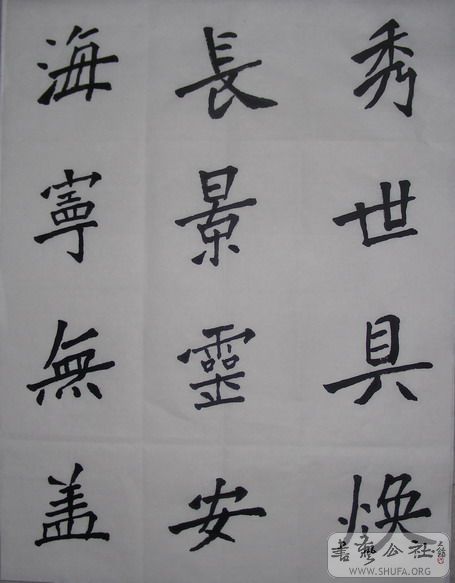 秀世具焕
長景靈安
海寧無盖
書藝公社
WWW.SHUFA.ORG